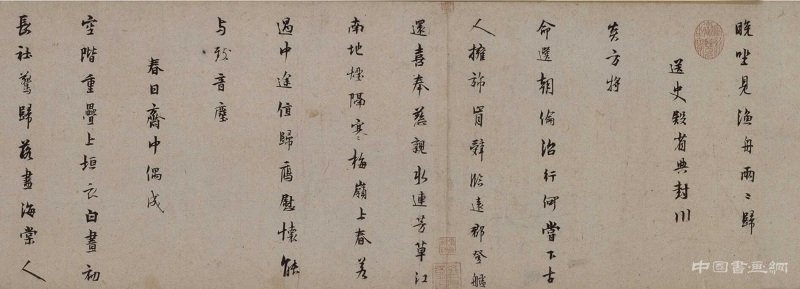 晚坐見漁舟兩〻歸
送史殿省典封川
炎方將
命選朝倫治行何當下古
人擁旆肯辭臨遠郡登艫
還喜奉慈親水連芳草江
南地煙隔寒梅嶺上春若
過中途值歸鴈慰懷能
与致音塵
春日齋中偶成
空階重疊上垣衣白晝初
長社鷰歸落盡海棠人
中国書画網